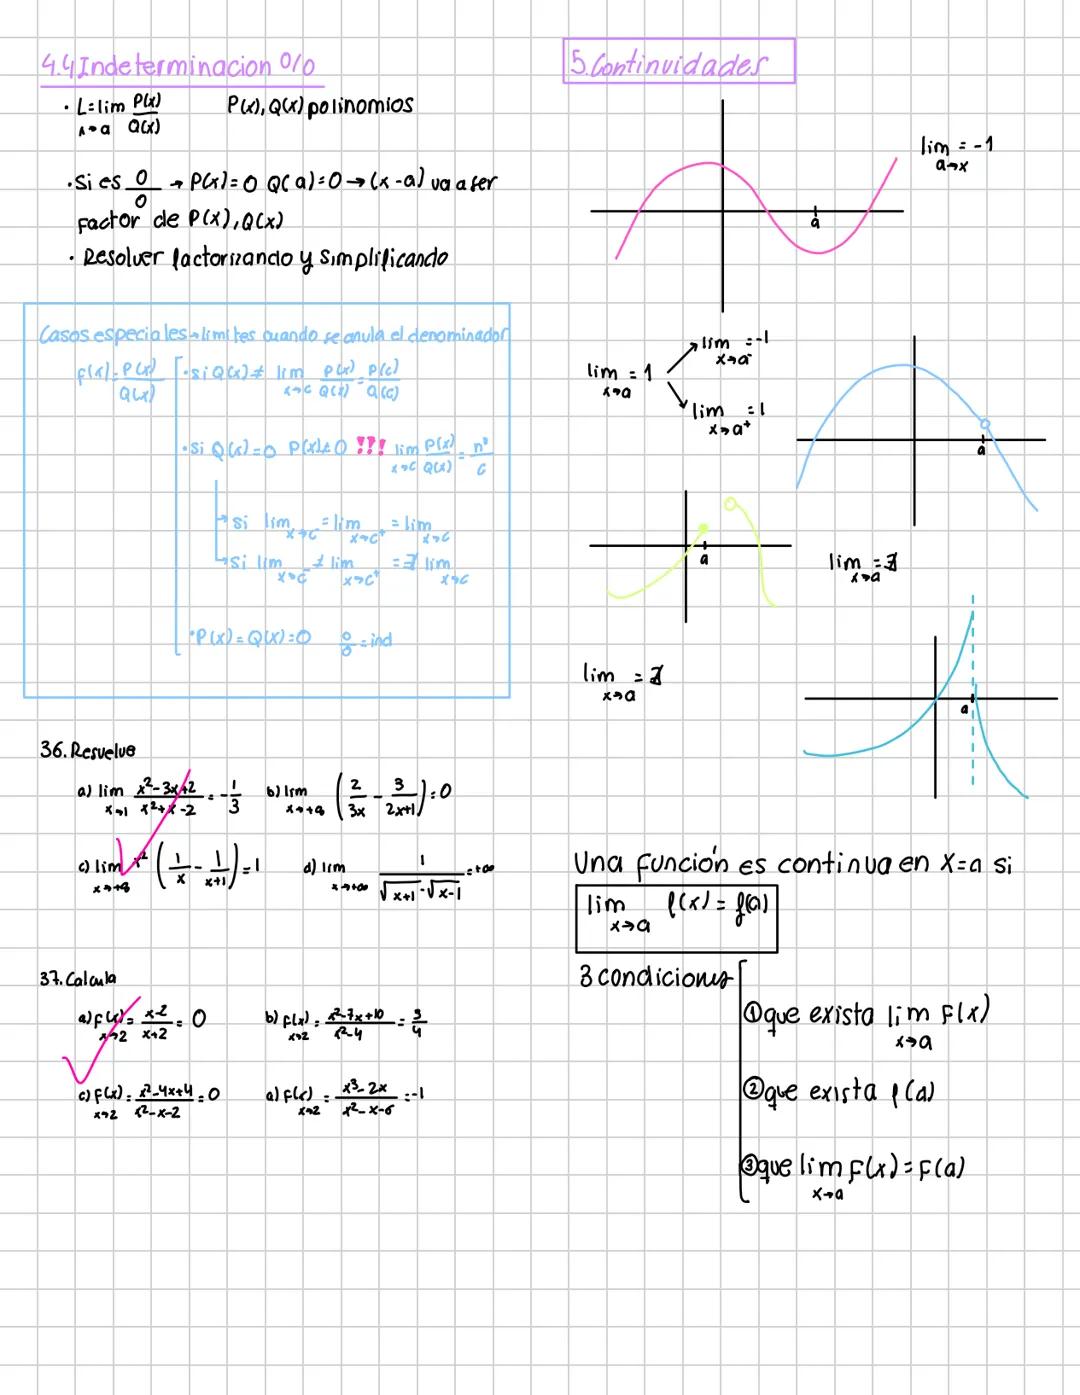 4.4 Indeterminacion 0/0
· L = lim P(x)/Q(x)    P(x), Q(x) polinomios
x→a
· Si es 0/0 → P(x)=0 Q(a)=0 → (x-a) va a ser
factor de P(x), Q(x)
· Resolver factorizando y simplificando
Casos especiales → limites cuando se anula el denominador
f(x) = P(x)/Q(x)
· si Q(x)≠ lim P(x)/Q(x) = P(c)/Q(c)
x→c
· Si Q(x)=0 P(x)≠0 ??? lim P(x)/Q(x) = nº/c
x→c
Si lim x→c⁻ = lim x→c⁺ = lim x→c
Si lim x→c⁻ ≠ lim x→c⁺ = ∄ lim x→c
· P(x)=Q(x)=0 0/0 = ind
36. Resuelve
a) lim x→1 (x²-3x+2)/(x²+x-2) = -1/3    b) lim x→+∞ (2/3x - 3/2x+1) = 0
c) lim x→+∞ x² (1/x - 1/x+1) = 1    d) lim x→+∞ 1/(√x+1 - √x-1) = +∞
37. Calcula
a) f(x) x→2 = x-2/x+2 = 0    b) f(x) x→2 = x²-7x+10/x²-4 = 3/4
c) f(x) x→2 = x²-4x+4/x²-x-2 = 0    a) f(x) x→2 = x³-2x/x²-x-6 = -1
5. Continuidades
lim = -1
a→x
a
lim x→a = 1
lim x→a⁻ = -1
lim x→a⁺ = 1
a
a
lim x→a = ∄
lim x→a = ∄
a
Una función es continua en x=a si
lim x→a f(x) = f(a)
3 condiciones
① que exista lim F(x)
x→a
② que exista f(a)
③ que lim F(x) = F(a)
x→a